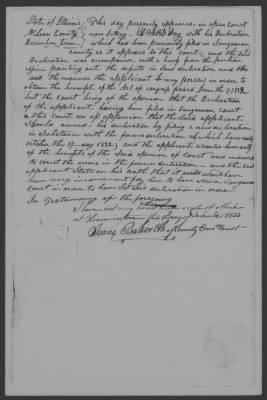 State of Illinois, This day personly appeared in open Court
McLean County, now sitting with his Declaration
December Term, which had been previously filed in Sangamon
County as it appears to this court, and the said
Declaration was accompanied with a from the pention
office pointing out the defects in said declaration and the
and the manner the applicant may persue in order to
obtain the benefit of the Act of congress passed June the 7 1832
but the court being of the opernon that the Declaration
of the applicant having been filed in Sangamon Court
this court are of oppernion that the said applicant
should amend his declaration by filing a new declaration
in Substance with the former declaration which bears date
october the 17 day 1832, and the applicant avails himself
of the benefits of the said opernon of court and wishes
to cover the errors in the former declaration and the said
applicant states on his oath that it would have
been very inconvenient for him to have Sangamon
court in order to have his declaration in order
In Testamony of the foregoing
I have set my hand and seal of office
at Bloomington this day of December 1833
Isaac Baker Clk of County Com Court